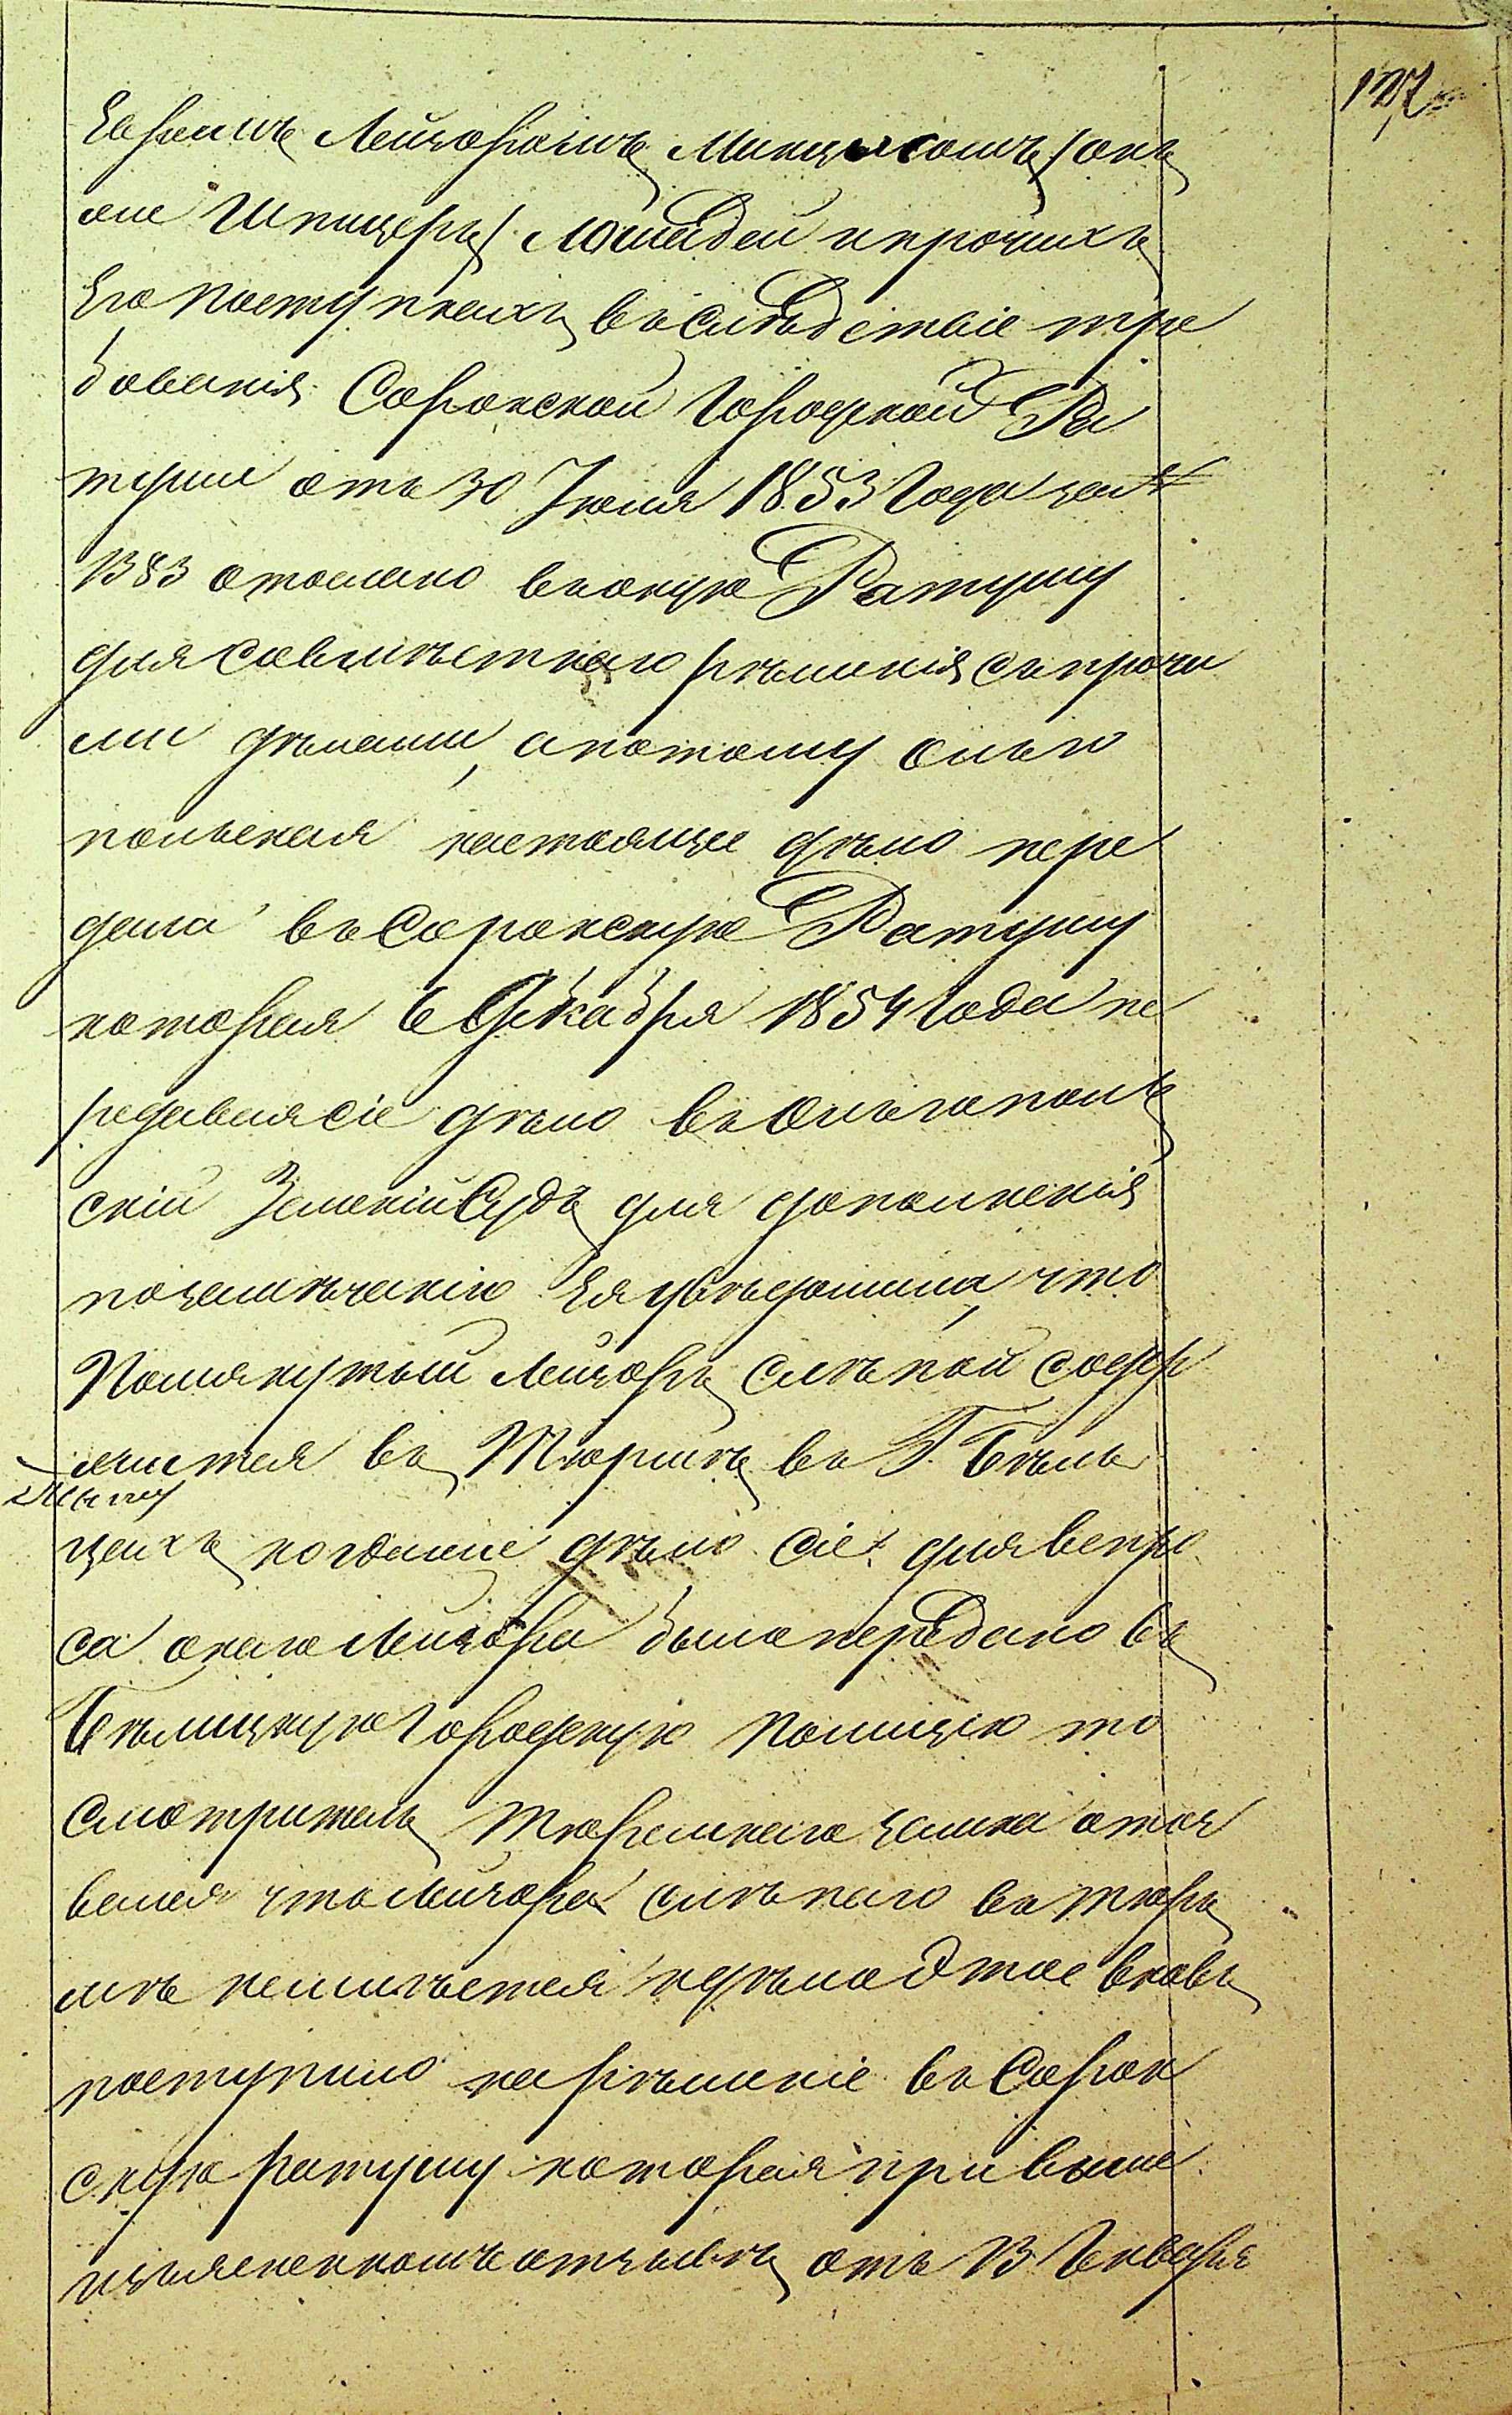 Евреемъ Лейзоромъ Минциссомъ /онъ
же Шпицеръ/ Лошадей и прочихъ
Его поступкахъ въ следствіе тре
бованія Сорокской Городской Ра
туши отъ 30 Іюля 1853 Года за №
1383 отослано въ оную Ратушу
для совмѣстнаго рѣшенія съ прочи
ми дѣлами, а потому Ольго
польская настоящее дѣло пере
дала въ Сорокскую Ратушу
которая 6 Декабря 1854 Года пе
редавая сіе дѣло въ Ольгополь
скій Земскій Судъ для дополненія
по замѣчанію Ея увѣдомила, что
Помянутый Лейзоръ Слѣпой содер
жится въ Тюрьмѣ въ Г. Бѣль
цахъ когда же дѣло сіе для вопро
са онаго Лейзора было передано въ
Бѣлицкую Городскую Полицію то
Смотритель Тюремнаго замка отоз
вался что Лейзора Слѣпаго въ тюрь
мѣ не имѣется и дѣло Этое вновь
поступило на рѣшеніе въ Сорок
скую ратушу которая при выше
изъясненномъ отзывѣ отъ 13 Января